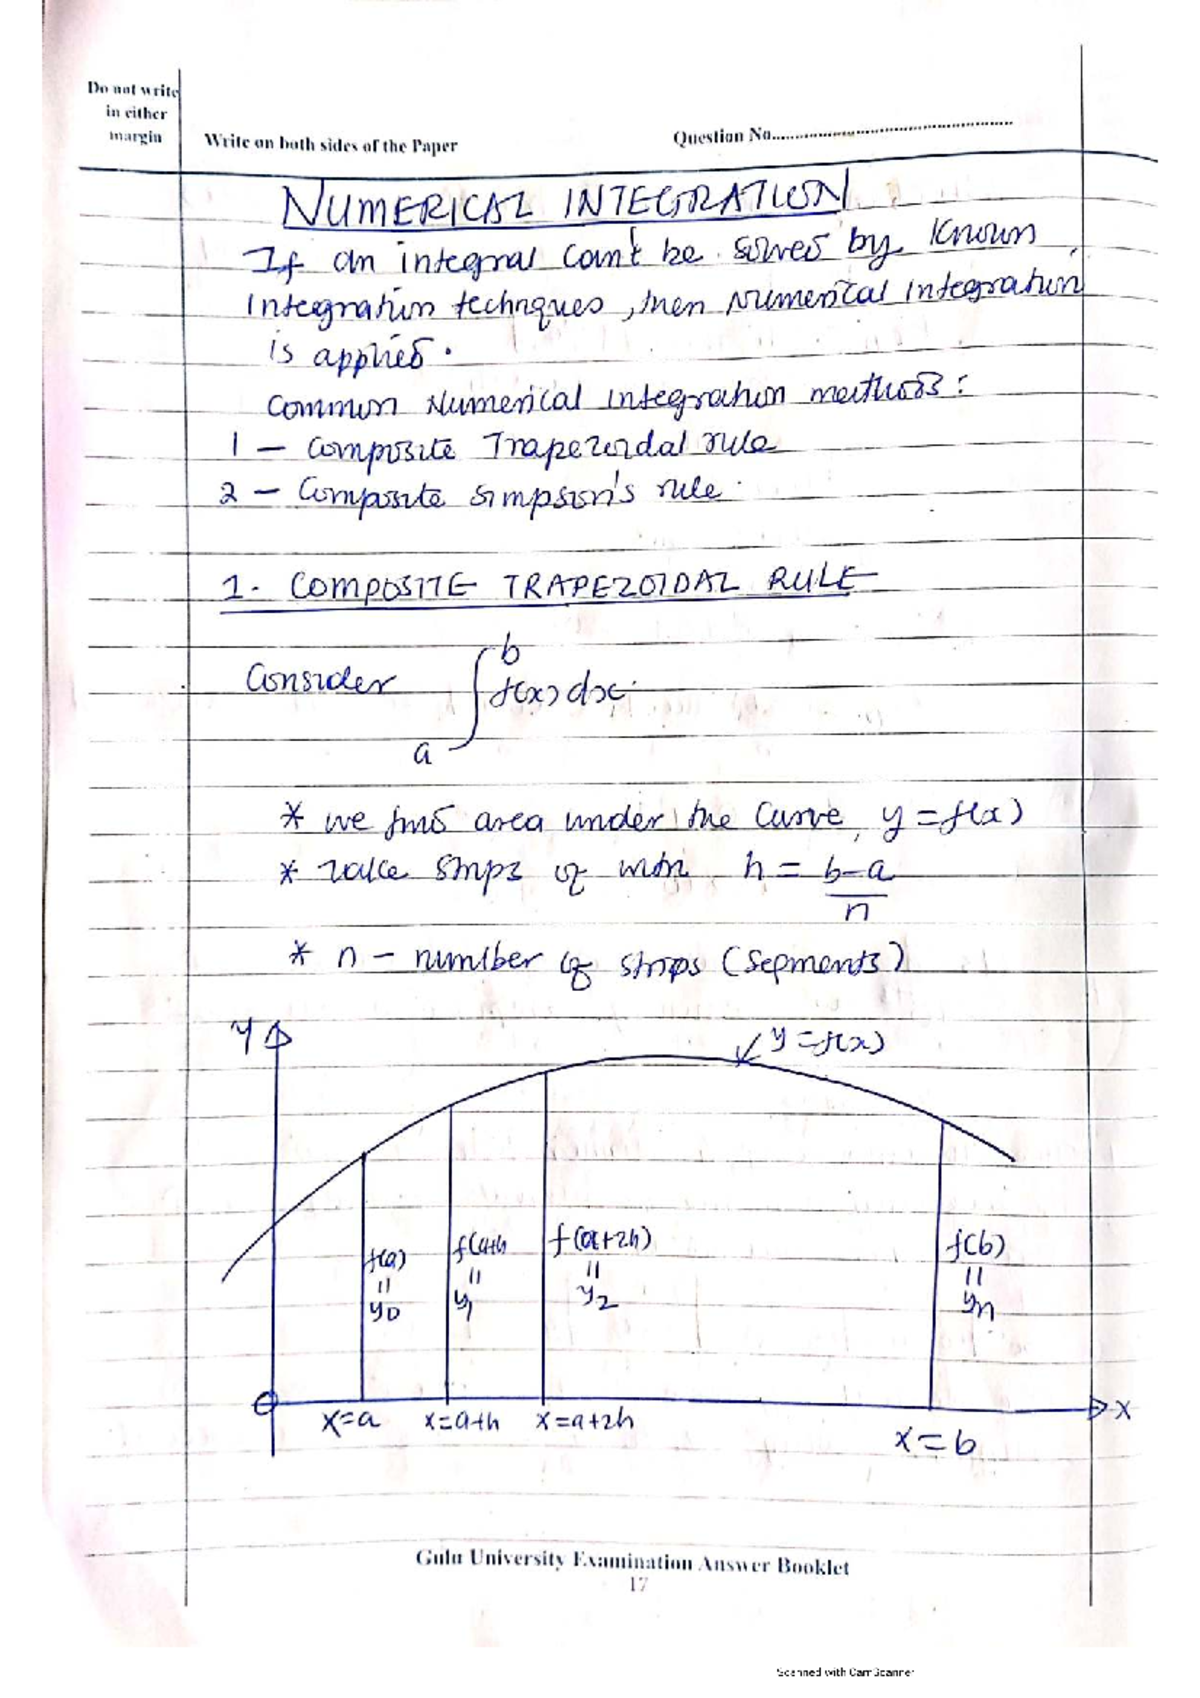 Do not write
in either
margin
Write on both sides of the Paper
Question No.
NUMERICAL INTEGRATION
If an integral can't be solved by known
integration techniques, then Numerical integration
is applied.
Common Numerical integration methods:
1 – Composite Trapezoidal rule
2 – Composite Simpson's rule.
1. COMPOSITE TRAPEZOIDAL RULE
Consider ∫ₐᵇ f(x) dx.
* we find area under the curve, y = f(x)
* Take strips of width h = (b-a)/n
* n – number of strips (segments)
y
y = f(x)
f(a) f(a+h f(a+2h) f(b)
= = = =
y0 y1 y2 yn
O
x
x=a x=a+h x=a+2h
x = b
Gulu University Examination Answer Booklet
17
Scanned with CamScanner